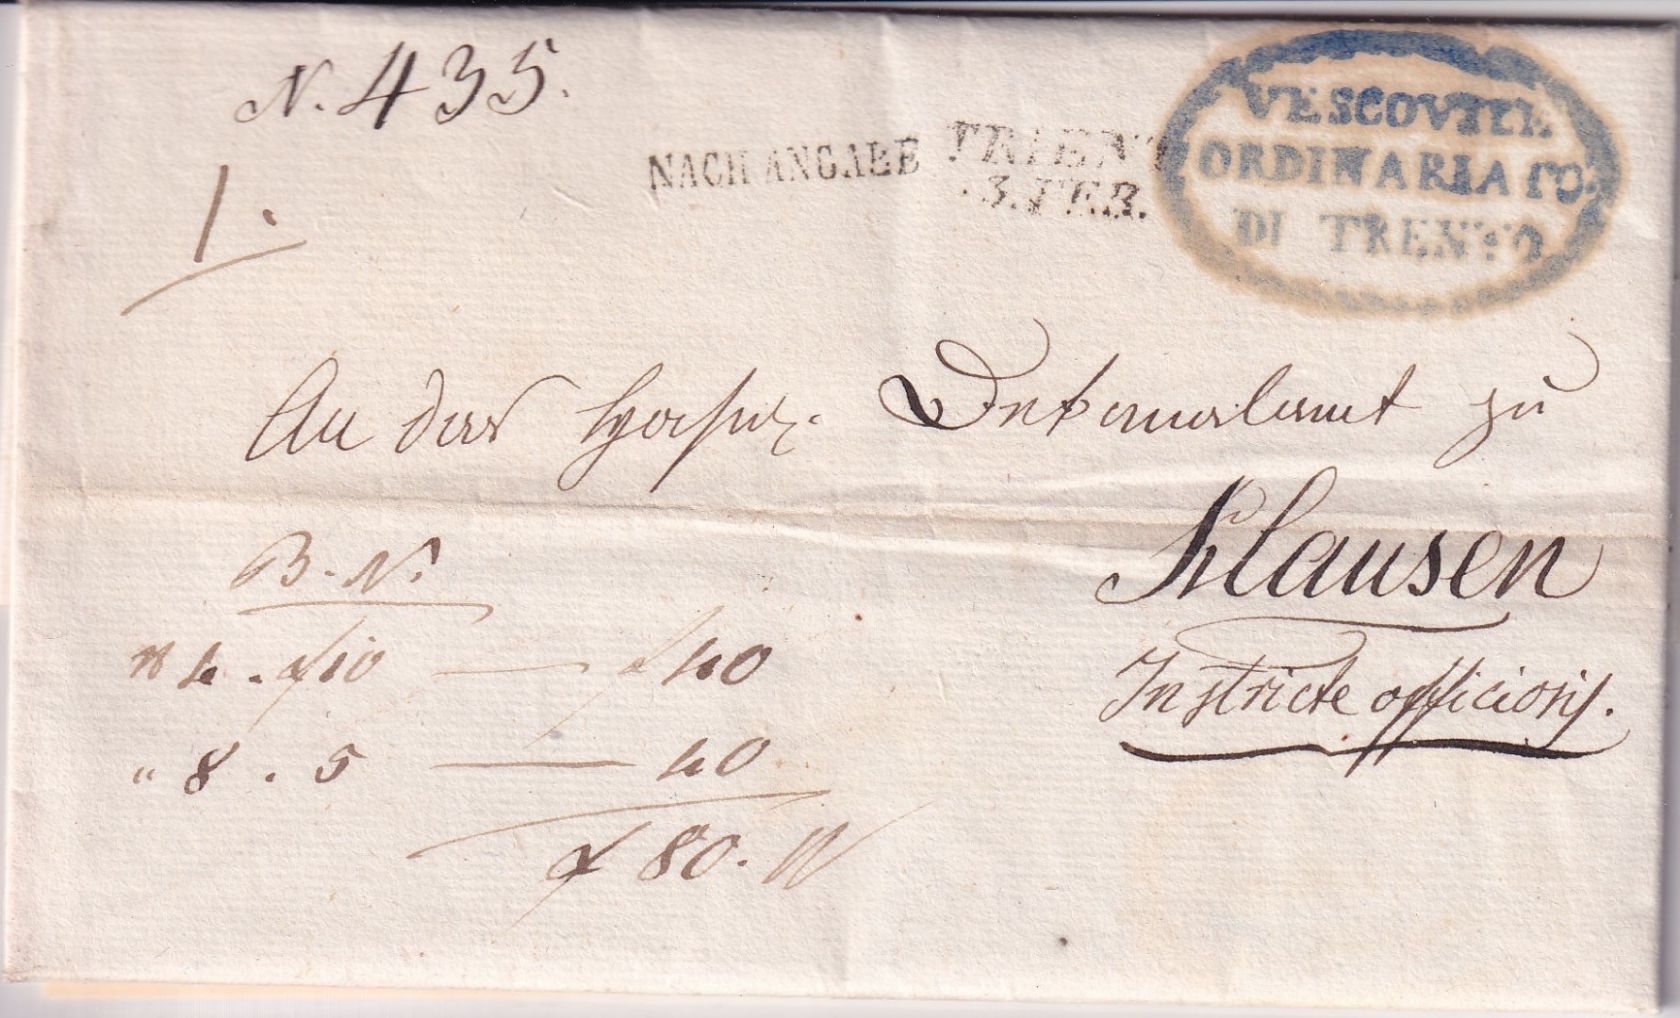 N. 435.
NACH ANGABE
TRIENT
3. FEB.
VESCOVILE
ORDINARIATO
DI TRENTO
1.
An das Hochw. Dekanalamt zu
Klausen
In stricte officiosis.
B. N.
4 . f 10 — f 40
" 8 . 5 — 40
f 80. W